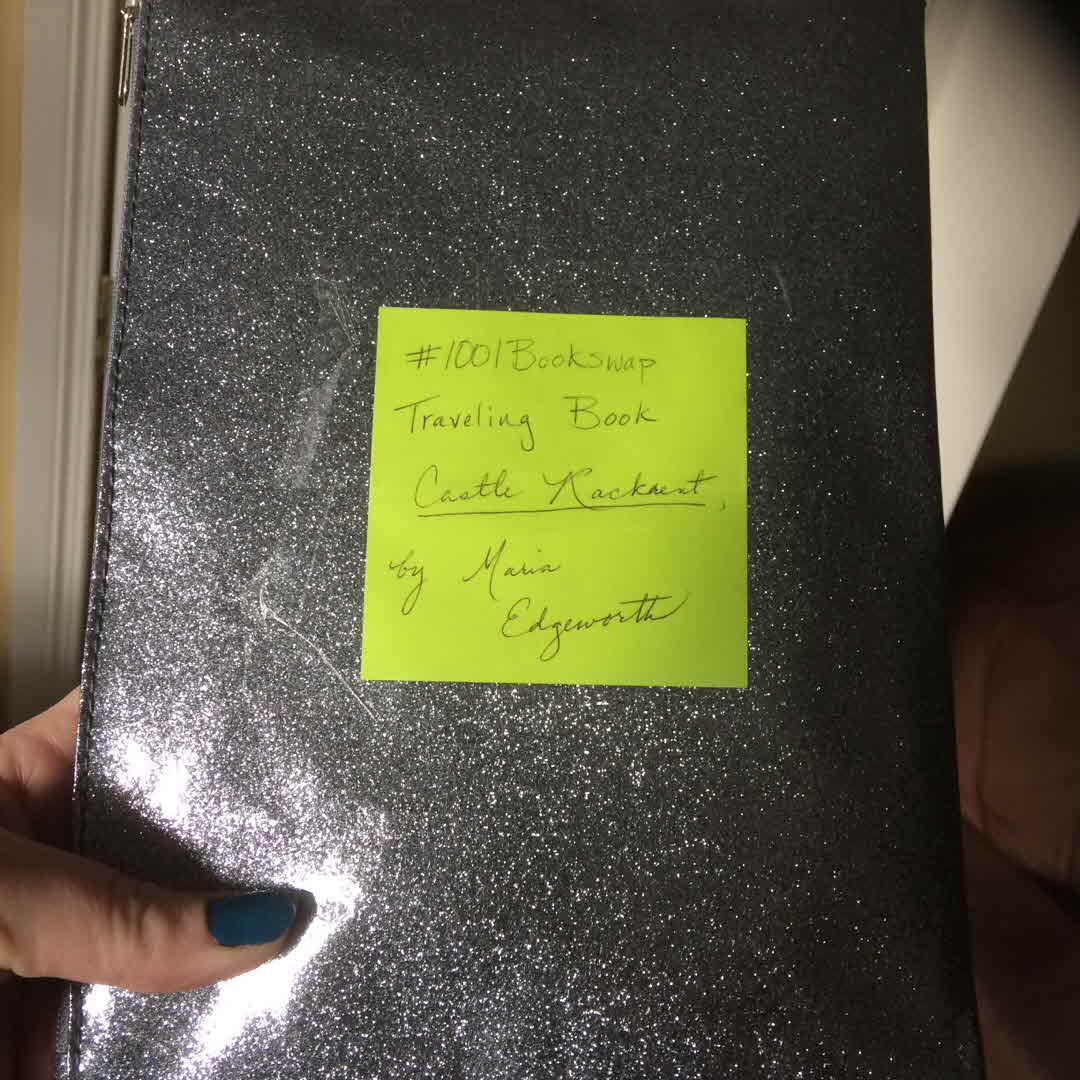 #1001Bookswap
Traveling Book
Castle Rackrent,
by Maria
Edgeworth